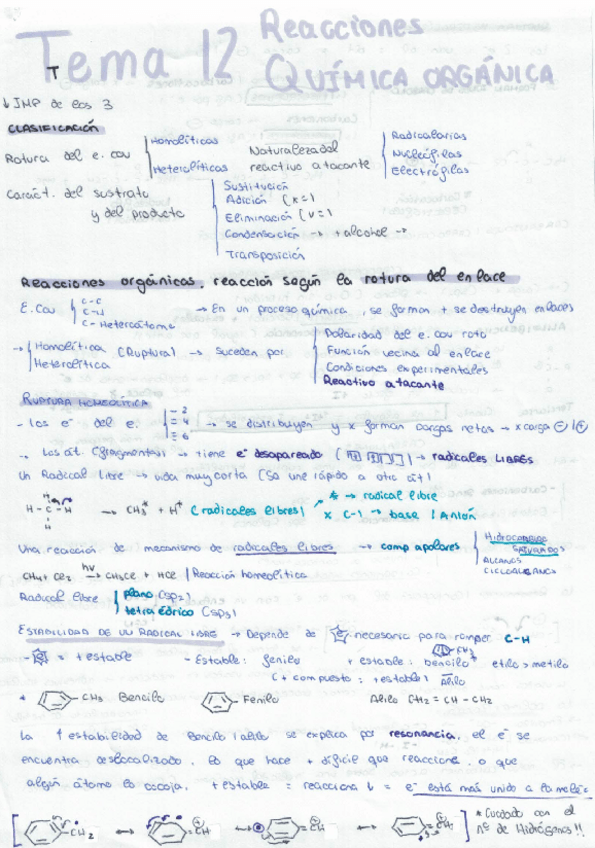 Tema 12 Reacciones
QUÍMICA ORGÁNICA
↓ IMP de los 3
CLASIFICACIÓN
Rotura del e. cov { Homolíticas Heterolíticas
Naturaleza del reactivo atacante { Radicalarias Nucleófilas Electrófilas
Caráct. del sustrato y del producto { Sustitución
Adición (x=)
Eliminación (v=)
Condensación → + alcohol →
Transposición
Reacciones orgánicas. reacción según la rotura del enlace
E. Cov { C-C C-H C-Heteroátomo → En un proceso química, se forman + se destruyen enlaces
→ { Homolítica Heterolítica (Ruptura) → Suceden por { Polaridad del e. cov roto
Función vecina al enlace
Condiciones experimentales
Reactivo atacante
RUPTURA HOMOLÍTICA
- los e⁻ del e. { - 2 = 4 ≡ 6 → se distribuyen y x forman cargas netas → x carga ⊖ / ⊕
→ Los át. (fragmentas) → tiene e⁻ desapareado → radicales LIBRES
Un Radical Libre → vida muy corta (Se une rápido a otro át)
H-C-H → CH₃* + H* (radicales libres) * → radical libre
x C-) → base / Anión
Una reacción de mecanismo de radicales libres → comp apolares { Hidrocarburos SATURADOS
ALCANOS
CICLOALCANOS
CH₄ + Cl₂ hv → CH₃Cl + HCl | Reacción homolítica
Radical libre { plano (sp₂)
tetraédrico (sp₃)
ESTABILIDAD DE UN RADICAL LIBRE → Depende de E necesaria para romper C-H
- E = + estable - Estable: fenilo + estable: bencilo etilo > metilo
(+ compuesto = + estable) Alilo
* CH₃ Bencilo Fenilo Alilo CH₂ = CH - CH₂
La ↑ estabilidad de Bencilo / alilo se explica por resonancia, el e⁻ se
encuentra deslocalizado, lo que hace + difícil que reaccione, o que
algún átomo lo escoja, + estable = reacciona ↓ = e⁻ está más unido a la moléc
CH₂ ↔ CH ↔ CH ↔ CH * Cuidado con el
nº de Hidrógenos!!